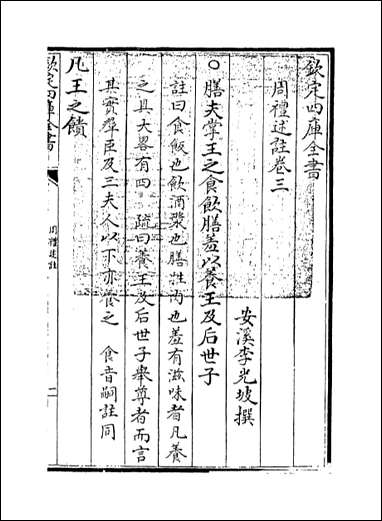 欽定四庫全書
周禮述註卷三
安溪李光坡撰
○膳夫掌王之食飲膳羞以養王及后世子
註曰食飯也飲酒漿也膳牲肉也羞有滋味者凡養
之具大畧有四 疏曰養王及后世子舉尊者而言
其實羣臣及三夫人以下亦養之 食音嗣註同
凡王之饋
欽定四庫全書
周禮述註